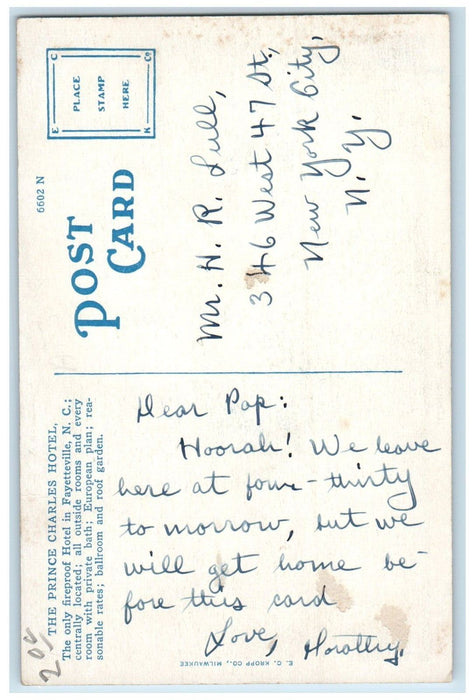 THE PRINCE CHARLES HOTEL,
The only fireproof Hotel in Fayetteville, N. C.;
centrally located; all outside rooms and every
room with private bath; European plan; rea-
sonable rates; ballroom and roof garden.
20¢
Dear Pop:
Hoorah! We leave
here at four-thirty
to morrow, but we
will get home be-
fore this card
Love, Dorothy.
E. C. KROPP CO., MILWAUKEE
6602 N
POST
CARD
C Co
PLACE
STAMP
HERE
E K
Mr. H. R. Lull,
346 West 47 St.,
New York City,
N. Y.